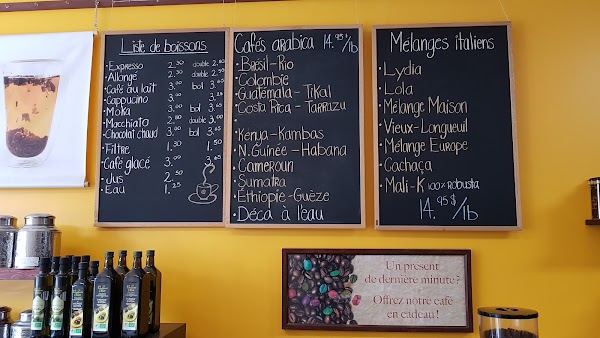 Liste de boissons
• Expresso 2.30 double 2.80
• Allongé 2.30 double 2.50
• Café au lait 3.00 bol 3.65
• Cappucino 3.00
• Moka 3.00 bol 3.65
• Macchiato 2.80 double 3.00
• Chocolat chaud 3.00 bol 3.65
• Filtre 1.30 1.50
• Café glacé 3.00 3.65
• Jus 2.50
• Eau 1.25
Cafés arabica 14.95$/lb
• Brésil-Rio
• Colombie
• Guatemala-Tikal
• Costa Rica-Tarrazu
• Kenya-Kambas
• N. Guinée-Habana
• Cameroun
• Sumatra
• Éthiopie-Guèze
• Déca à l'eau
Mélanges italiens
• Lydia
• Lola
• Mélange Maison
• Vieux-Longueuil
• Mélange Europe
• Cachaça
• Mali-K 100% robusta
14.95$/lb
Un présent
de dernière minute?
Offrez notre café
en cadeau!